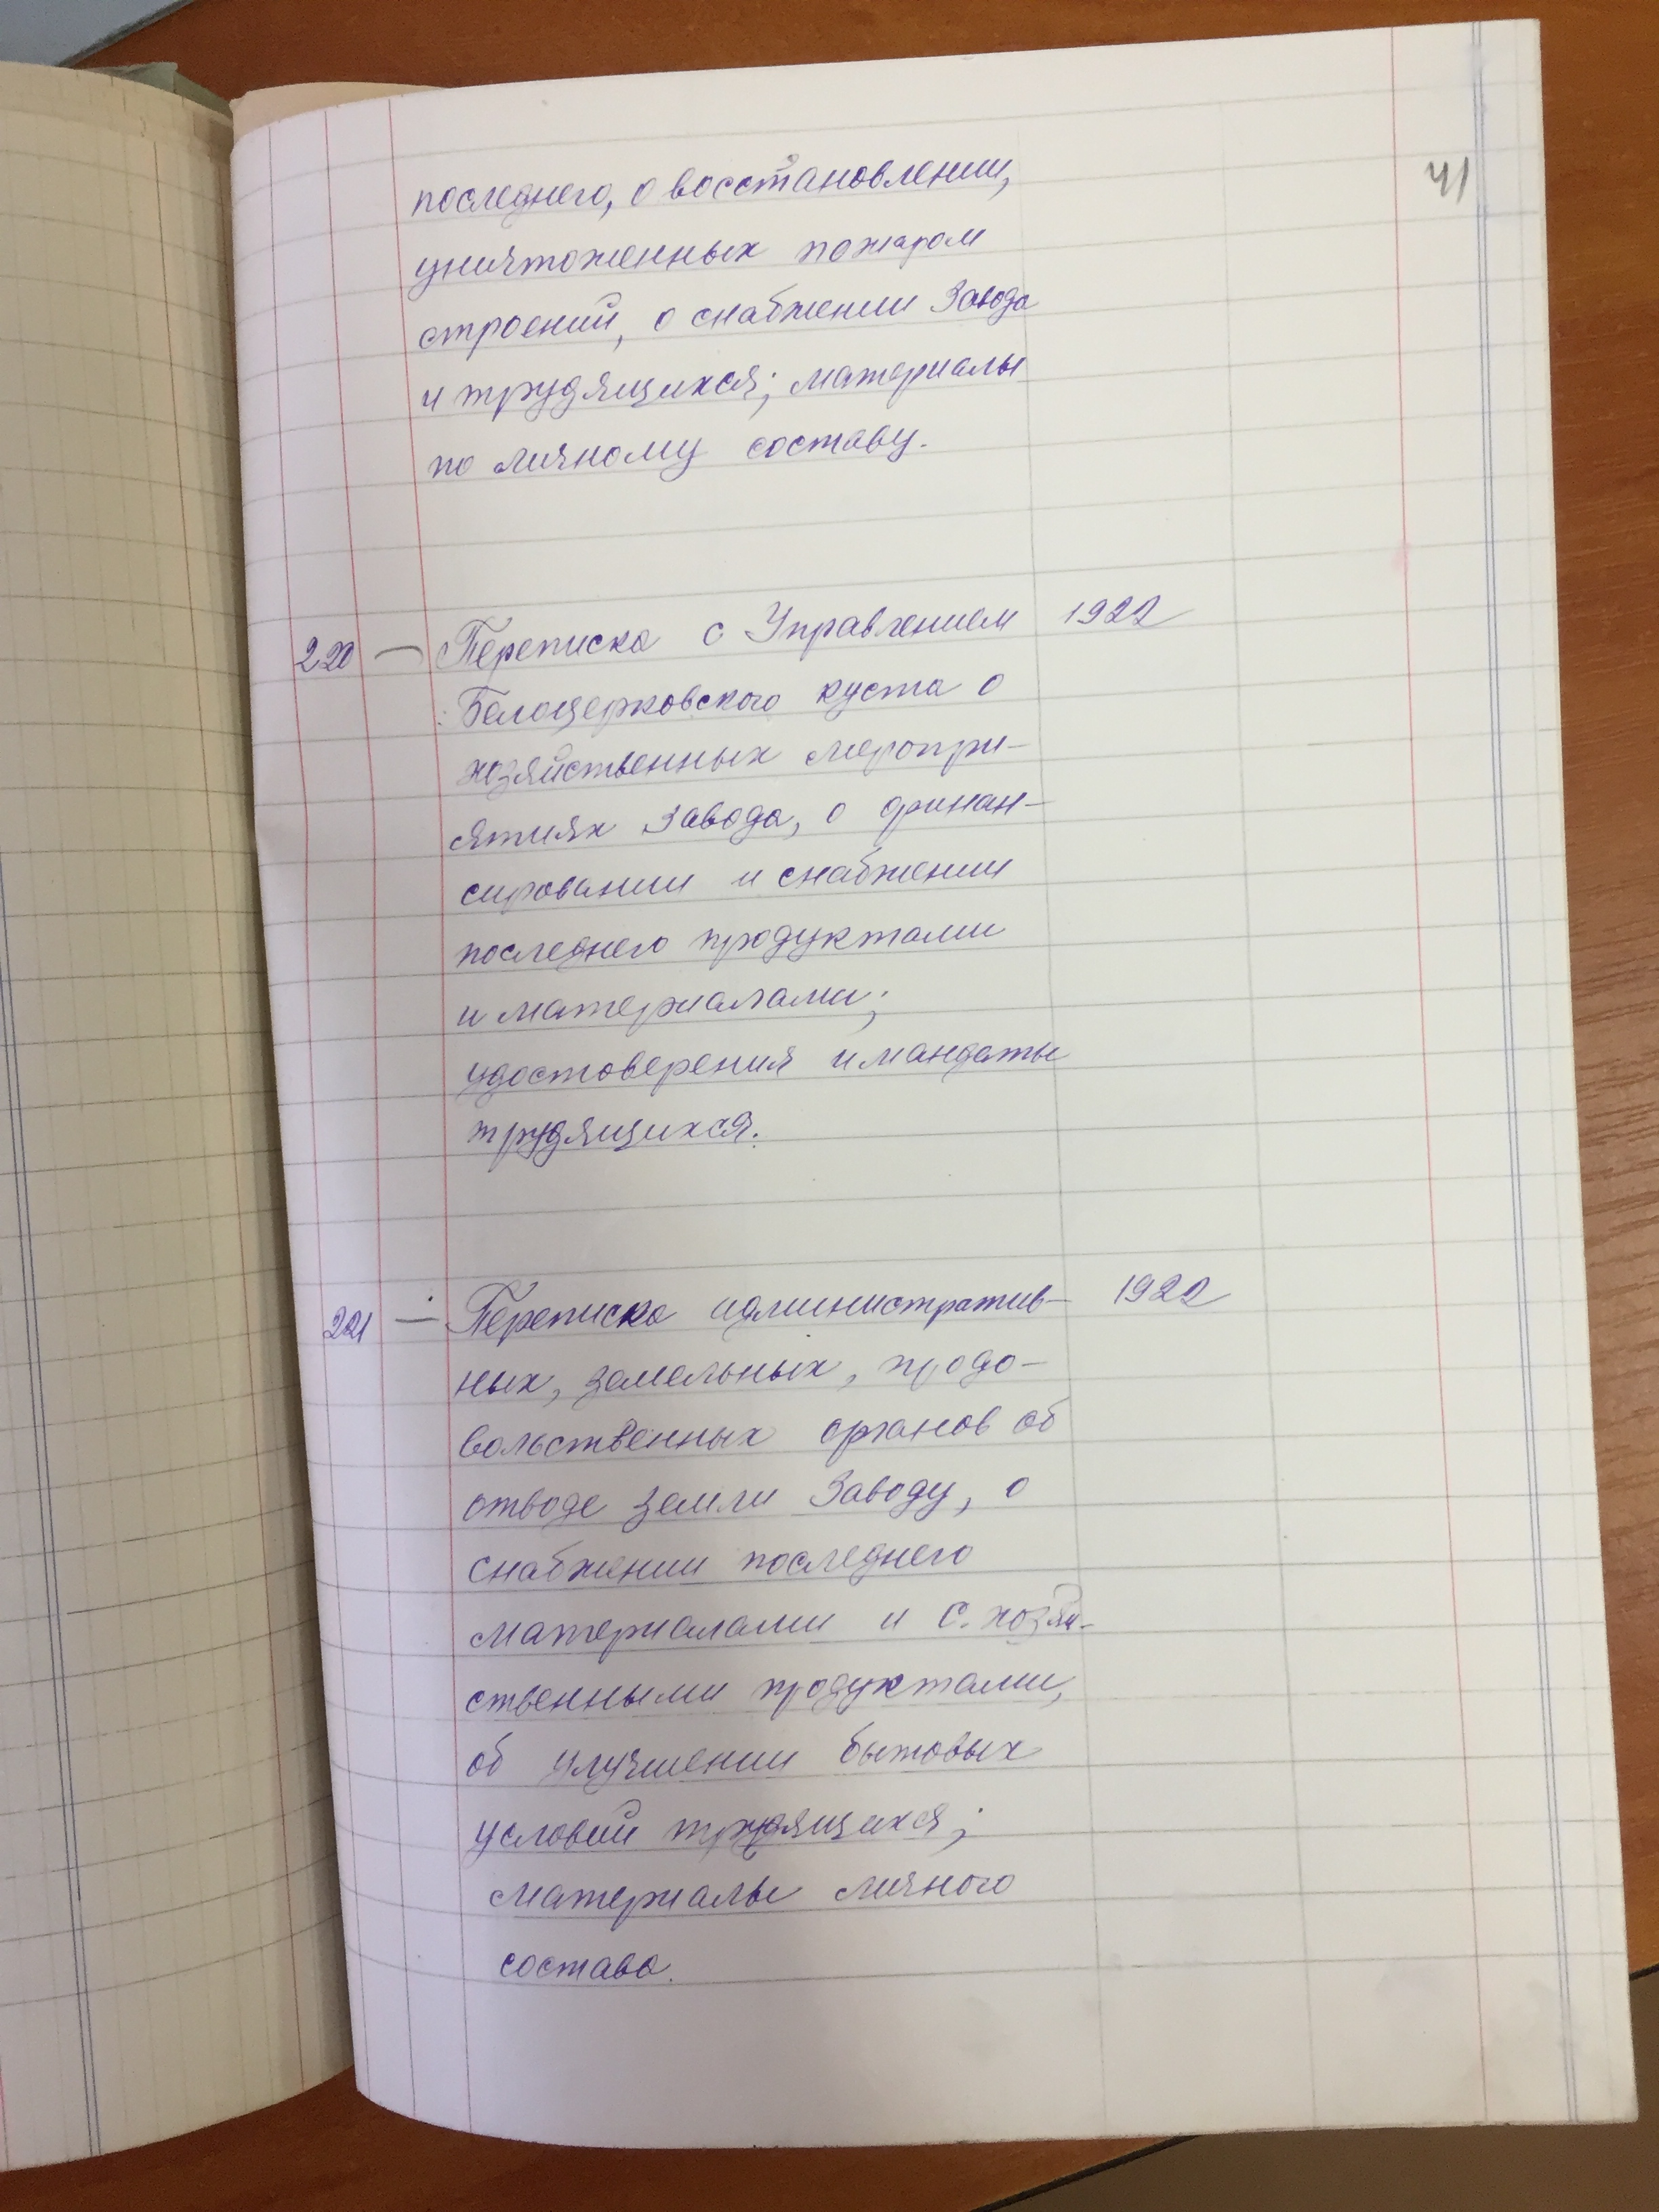 41
последнего, о восстановлении,
уничтоженных пожаром
строений, о снабжении Завода
и трудящихся; материалы
по личному составу.
220 — Переписка с Управлением 1922
Белоцерковского куста о
хозяйственных меропри-
ятиях завода, о финан-
сировании и снабжении
последнего продуктами
и материалами;
удостоверения и мандаты
трудящихся.
221 — Переписка административ- 1922
ных, земельных, продо-
вольственных органов об
отводе земли Заводу, о
снабжении последнего
материалами и с. хозяй-
ственными продуктами,
об улучшении бытовых
условий трудящихся;
материалы личного
состава.